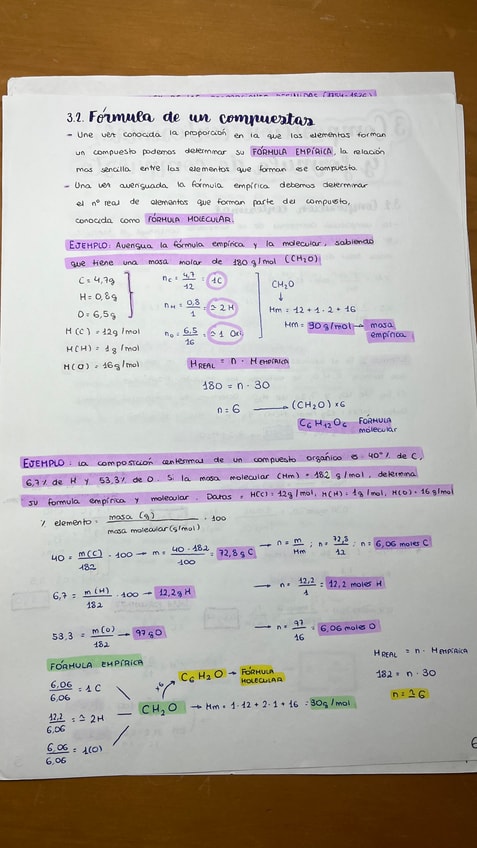 3.2. Fórmula de un compuestas
- Une vez conocida la proporción en la que los elementos forman
un compuesto podemos determinar su FÓRMULA EMPÍRICA, la relación
mas sencilla entre los elementos que forman ese compuesto
- Una vez averiguada la fórmula empírica debemos determinar
el nº real de elementos que forman parte del compuesto,
conocida como FÓRMULA MOLECULAR.
EJEMPLO: Averigua la fórmula empírica y la molecular, sabiendo
que tiene una masa molar de 180 g/mol (CH₂O)
C = 4,7g
H = 0,8g
O = 6,5g
M(C) = 12g/mol
M(H) = 1g/mol
M(O) = 16g/mol
nC = 4,7/12 = 1C
nH = 0,8/1 = ≃ 2H
nO = 6,5/16 = ≃ 1 Oxi
CH₂O
↓
Mm = 12 + 1 · 2 + 16
Mm = 30 g/mol → masa
empírica
MREAL = n · MEMPÍRICA
180 = n · 30
n = 6 → (CH₂O) x6
C₆H₁₂O₆ FÓRMULA
molecular
EJEMPLO: La composición centesimal de un compuesto orgánico es 40% de C,
6,7% de H y 53,3% de O. Si la masa molecular (Mm) = 182 g/mol, determina
su formula empírica y molecular. Datos = M(C) = 12g/mol, M(H) = 1g/mol, M(O) = 16 g/mol
% elemento = masa (g) / masa molecular (g/mol) · 100
40 = m(C)/182 · 100 → m = 40 · 182/100 = 72,8g C → n = m/Mm ; n = 72,8/12 ; n = 6,06 moles C
6,7 = m(H)/182 · 100 → 12,2g H → n = 12,2/1 = 12,2 moles H
53,3 = m(O)/182 → 97g O → n = 97/16 = 6,06 moles O
FÓRMULA EMPÍRICA
6,06/6,06 = 1C
12,2/6,06 = ≃ 2H
6,06/6,06 = 1(O)
CH₂O → Mm = 1 · 12 + 2 · 1 + 16 = 30g/mol
x6
C₆H₂O → FÓRMULA
MOLECULAR
MREAL = n · MEMPÍRICA
182 = n · 30
n = ≃ 6